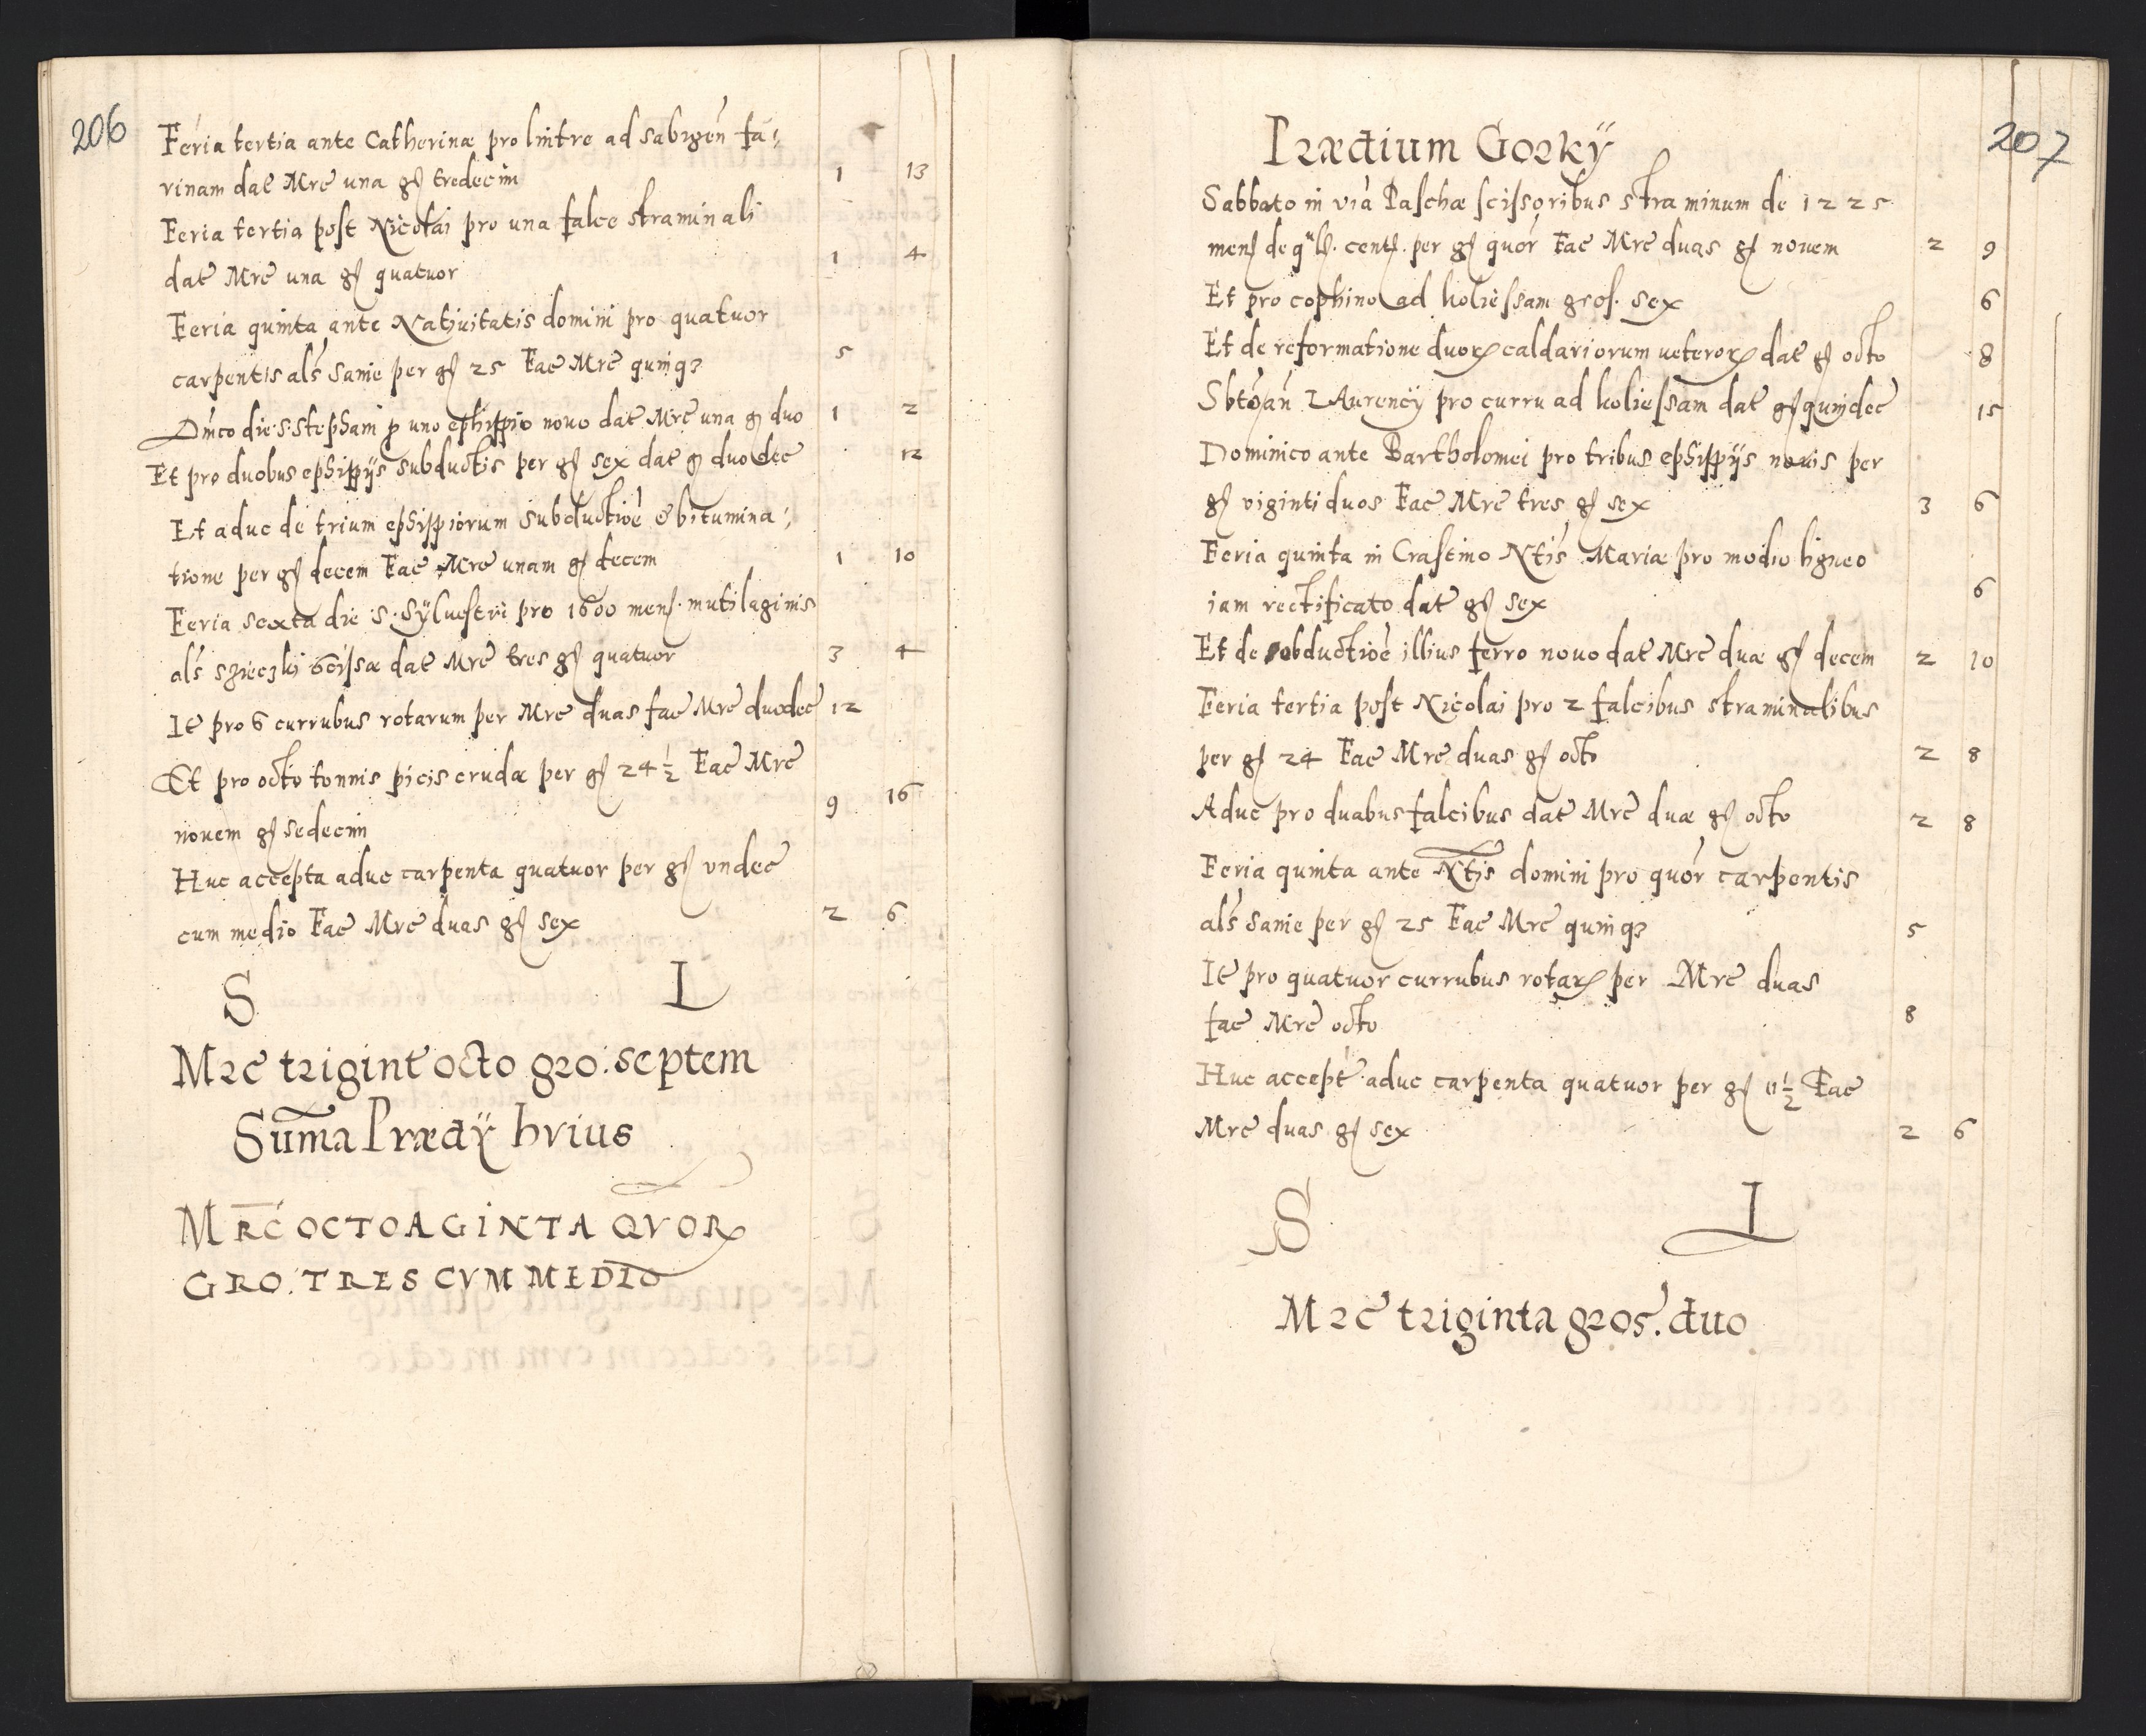 206
Feria tertia ante Catherinæ pro lintre ad sabigēn fa⸗
rinam dat Mrc̄ una gſ tredecim 1 13
Feria tertia post Nicolai pro una falce straminali
dat Mrc̄ una gſ quatuor 1 4
Feria quinta ante Natiuitatis domini pro quatuor
carpentis als Sanie per gſ 25 Fac̄ Mrc̄ quinq3 5
Dnīco die S. Stephani p uno ephippio nouo dat Mrc̄ una gſ duo 1 2
Et pro duobus ephippijs subductis per gſ sex dat gſ duodec̄ 12
Et aduc de trium ephippiorum subductiōe & bitumina⸗
tione per gſ decem Fac̄ Mrc̄ unam gſ decem 1 10
Feria sexta die S. Sÿluestri pro 1600 menſ. mutilaginis
als szieczki scissæ dat Mrc̄ tres gſ quatuor 3 4
It̄ pro 6 currubus rotarum per Mrc̄ duas fac̄ Mrc̄ duodec̄ 12
Et pro octo tonnis picis crudæ per gſ 24 ½ Fac̄ Mrc̄
nouem gſ sedecim 9 16
Huc accepta aduc carpenta quatuor per gſ vndec̄
cum medio Fac̄ Mrc̄ duas gſ sex 2 6
S L
Mrc̄ trigint̄ octo gro. septem
Sum̄a Prædÿ hvius
MRC̄ OCTOAGINTA QVOR
GRO. TRES CVM MEDIO
207
Prædium Gorkÿ
Sabbato in viā Paschæ scissoribus straminum de 1225
menſ de qulſ. centſ. per gſ quōr Fac̄ Mrc̄ duas gſ nouem 2 9
Et pro cophino ad koliessam groſ. sex 6
Et de reformatione duoꝝ caldariorum ueteroꝝ dat gſ octo 8
Sbtō an̄ LAurencÿ pro curru ad koliessam dat gſ quindec̄ 15
Dominico ante Bartholomei pro tribus ephippijs nouis per
gſ viginti duos Fac̄ Mrc̄ tres gſ sex 3 6
Feria quinta in Crastino Ntis Mariæ pro modio ligneo
iam rectificato dat gſ sex 6
Et de obductiōe illius ferro nouo dat Mrc̄ duæ gſ decem 2 10
Feria tertia post Nicolai pro 2 falcibus straminalibus
per gſ 24 Fac̄ Mrc̄ duas gſ octo 2 8
Aduc pro duabus falcibus dat Mrc̄ duæ gſ octo 2 8
Feria quinta ante Ntis domini pro quōr carpentis
als sanie per gſ 25 Fac̄ Mrc̄ quinq3 5
It̄ pro quatuor currubus rotaꝝ per Mrc̄ duas
fac̄ Mrc̄ octo 8
Huc accept̄ aduc carpenta quatuor per gſ 11 ½ Fac̄
Mrc̄ duas gſ sex 2 6
S L
Mrc̄ triginta gros. duo